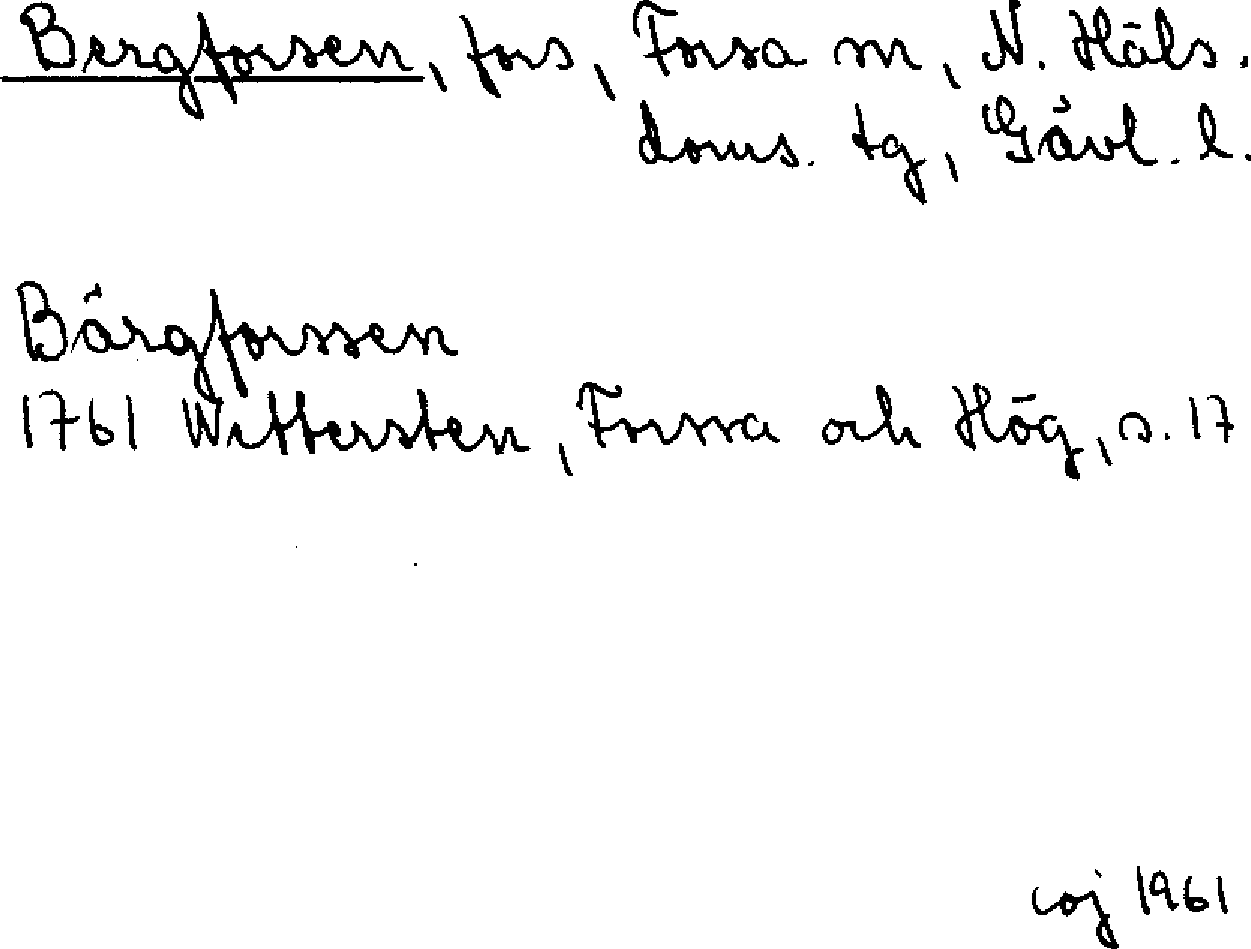 Bergforsen, fors, Forsa sn, N. Häls.
doms. tg, Gävl. l.
Bärgforssen
1761 Wittersten, Forssa och Hög, s. 17
coj 1961